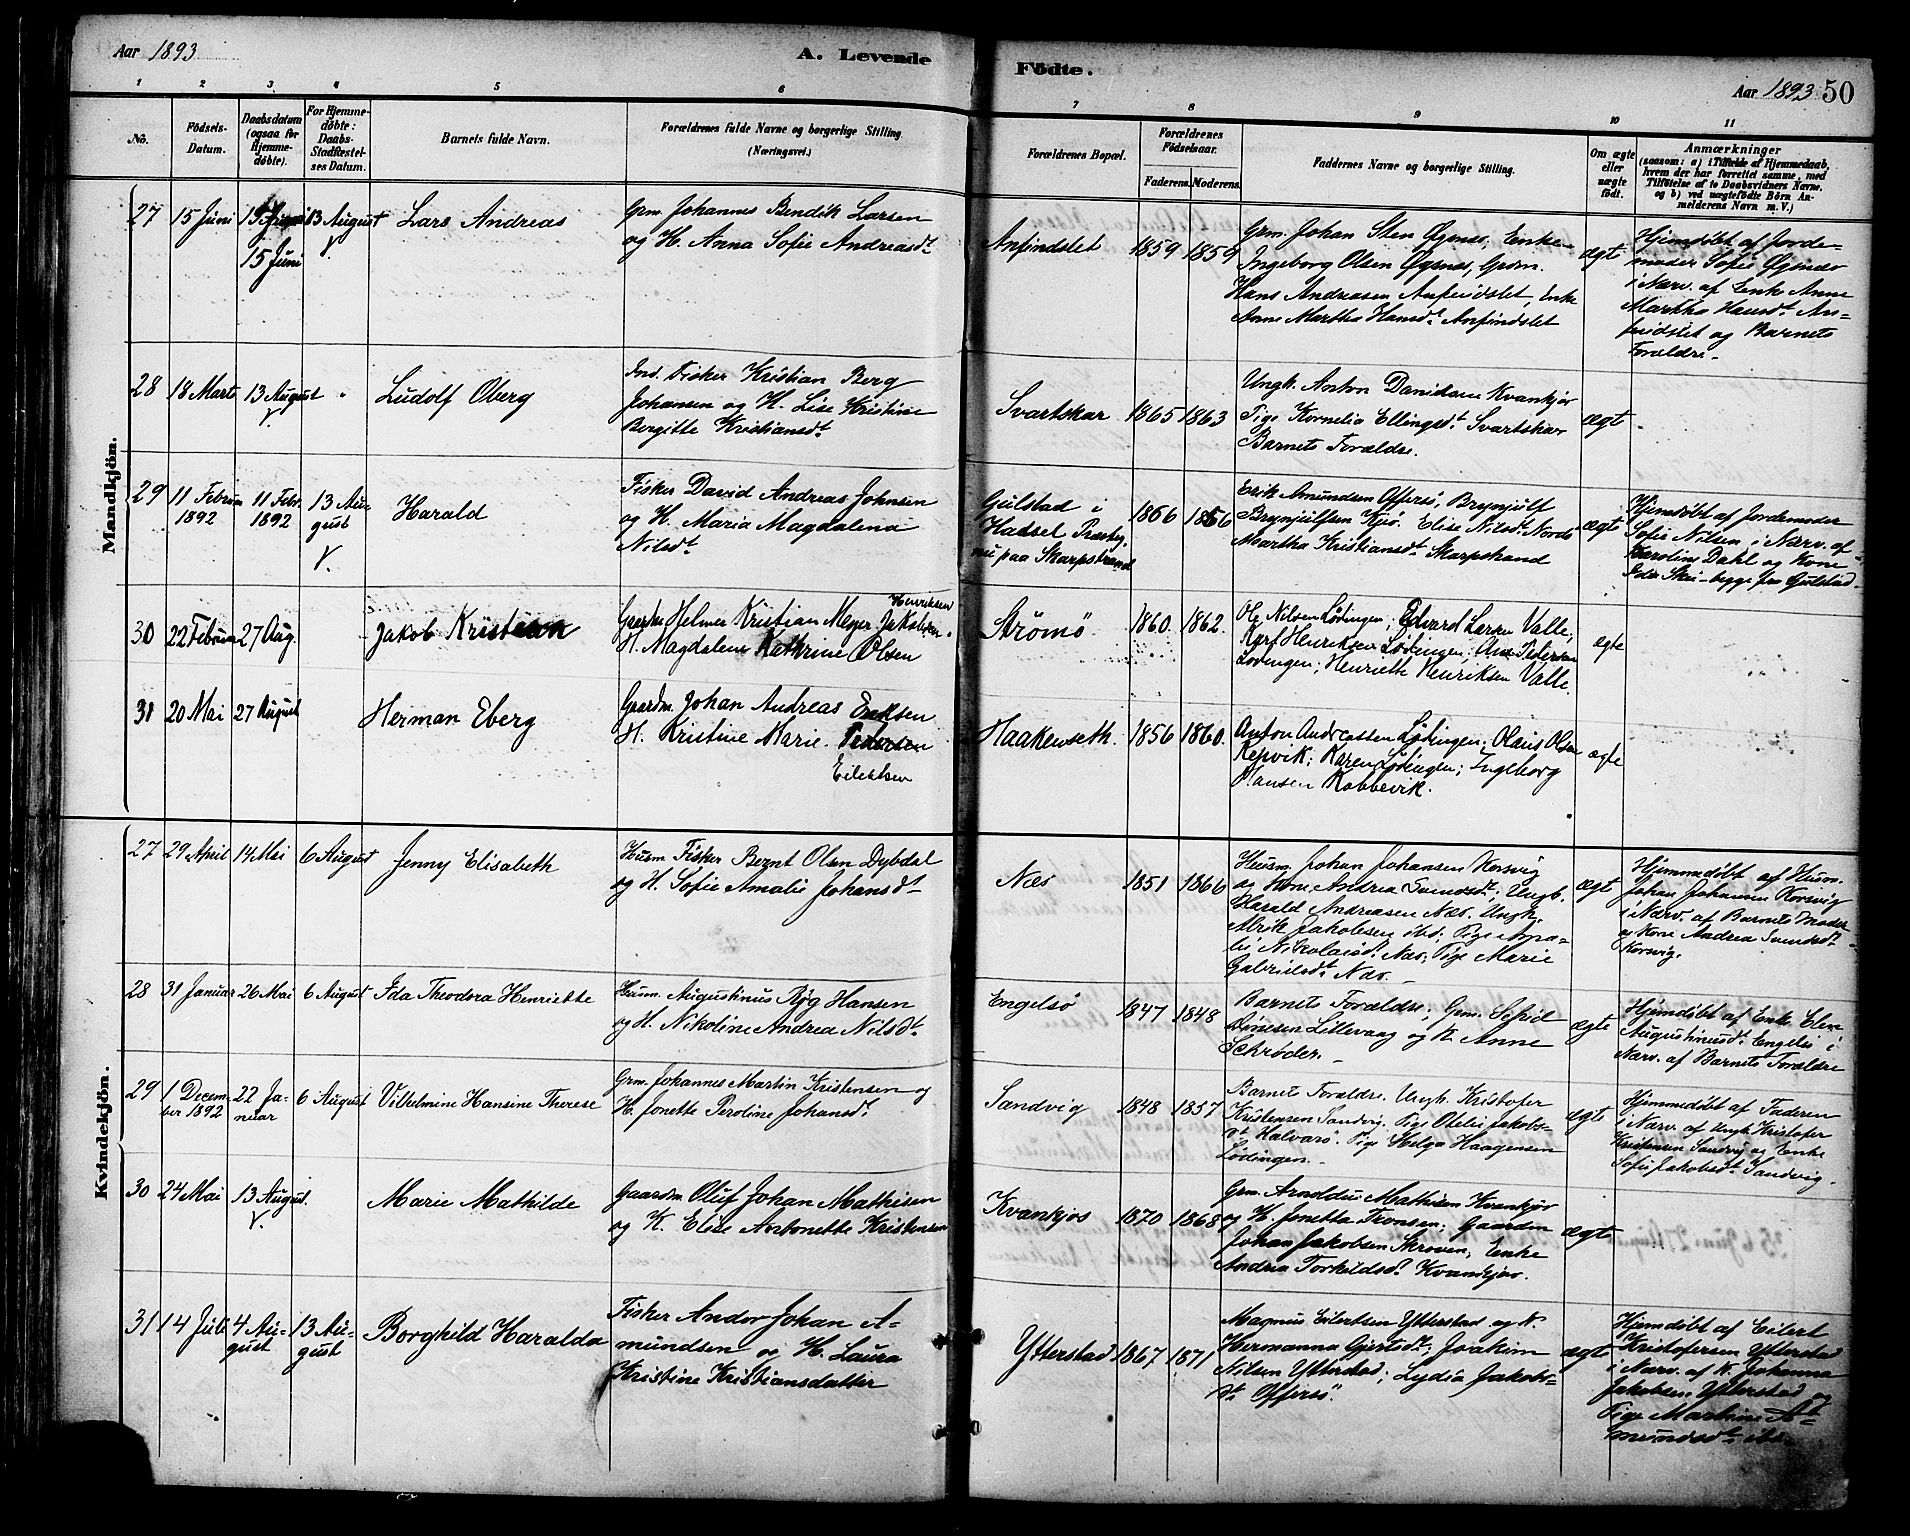 Aar 1893
A. Levende
Födte.
Aar 1893 50
1 2 3 4 5 6 7 8 9 10 11
No.
Födsels-
Datum.
Daabsdatum
(ogsaa for
Hjemme-
døbte).
For Hjemme-
døbte:
Daabs-
Stadfæstel-
ses Datum.
Barnets fulde Navn.
Forældrenes fulde Navne og borgerlige Stilling.
(Næringsvei.)
Forældrenes Bopæl.
Forældrenes
Födselsaar.
Faderens. Moderens.
Faddernes Navne og borgerlige Stilling.
Om ægte
eller
uægte
født.
Anmærkninger
(saasom: a) i Tilfælde af Hjemmedaab,
hvem der har forrettet samme, med
Tilføielse af to Daabsvidners Navne,
og b) ved uægtefödte Börn An-
melderens Navn m. V.)
Mandkjön.
27
15 Juni
15 Juni
13 August
V.
Lars Andreas
Grm. Johannes Bendik Larsen
og H. Anna Sofie Andreasdt
Anfindslet
1859
1859
Grm. Johan Sten Øgsnes, Enke
Ingeborg Olsen Øgsnes, Grdm.
Hans Andreasen Anfindslet, Enke
Anne Martha Hansdt. Anfindslet
ægte
Hjemdøbt af Jorde-
moder Sofie
i Nærv. af Enke Anne
Martha Hansdt. An-
findslet og Barnets
Forældre.
28
18 Marts
13 August
V.
Ludolf Oberg
Ind. Fisker Kristian Berg
Johansen og H. Lise Kristine
Bergitte Kristiansdt
Svartskar
1865
1863
Ungk. Anton Danielsen Kvankjør
Pige Kornelia Ellingsdt. Svartskar
Barnets Forældre.
ægt
29
11 Februar
1892
11 Febr.
1892
13 Au-
gust
V.
Harald
Fisker David Andreas Johnsen
og H. Maria Magdalena
Nilsdt
Gulstad i
Hadsel Præstegj.
nu paa Skarpstrand
1866
1866
Erik Amundsen Offersø, Brynjulf
Brynjulfsen Kjø. Elise Nilsdt.
Martha Kristiansdt. Skarpstrand
ægte
Hjemdøbt af Jordemoder
Sofie Nilsen i Nærv. af
Karoline Dahl og Kone
begge fra Gulstad
30
22 Februar
27 Aug.
Jakob Kristian
Henriksen
Gaardm Helmer Kristian Meyer Jakobsen.
H. Magdalene Kathrine Olsen
Strømø
1860
1862
Ole Nilsen Lødingen; Edvard Larsen Valle;
Karl Henriksen Lødingen; Ane Pedersen
Lødingen; Henriette Henriksen Valle.
ægte
31
20 Mai
27 August
Herman Eberg
Gaardm. Johan Andreas Eriksen
H. Kristine Marie Pedersen
Eilertsen
Haakenseth.
1856
1860.
Anton Andreassen Lødingen; Olaus Olsen
Repvik; Karen Lødingen; Ingeborg
Hansen Kobbevik.
ægte
Kvindekjön.
27
29 April
14 Mai
6 August
Jenny Elisabeth
Husm. Fisker Bernt Olsen Dybdal
og H. Sofie Amalie Johansdt
Næs
1851
1866
Husm. Johan Johansen Korsvig
og Kone Andrea Svendsdt; Ungk.
Harald Andreasen Næs. Ungk.
Alrik Jakobsen ibid; Pige Ama-
lie Nikolaisdt. Næs, Pige Marie
Gabrielsdt. Næs.
ægt
Hjemmedøbt af Husm.
Johan Johansen Korsvig
i Nærv. af Barnets Moder
og Kone Andrea Svendsdt
Korsvig.
28
31 Januar
26 Mai
6 August
Ida Theodora Henriette
Husm. Augustinus Røg Hansen
og H. Nikoline Andrea Nilsdt.
Engelsø
1847
1848
Barnets Forældre; Grm. Sefrid
Dinesen Lillevaag og K. Anne
Schrøder.
ægte
Hjemdøbt af Enke Elen
Augustinusdt. Engelsø i
Nærv. af Barnets Forældre
29
1 Decem-
ber 1892
22 Ja-
nuar
6 August
Vilhelmine Hansine Therese
Grm. Johannes Martin Kristensen og
H. Jonette Peroline Johansdt.
Sandvig
1848
1857
Barnets Forældre. Ungk. Kristofer
Kristensen Sandvig. Pige Otelie Jakobs-
dt Halvarø. Pige Helga Haagensen
Lødingen.
ægte
Hjemmedøbt af Faderen
i Nærv. af Ungk. Kristofer
Kristensen Sandvig og Enke
Sofie Jakobsdt. Sandvig.
30
24 Mai
13 August.
V.
Marie Mathilde
Gaardm. Oluf Johan Mathisen
og K. Elise Antonette Kristensen
Kvankjøs
1870
1868
Grm. Arnoldus Mathisen Kvankjør
og H. Jonetta Tronsen; Gaardm
Johan Jakobsen Skroven, Enke
Andrea Torkildsdt. Kvankjør.
ægte
31
14 Juli
4 Au-
gust
13 Au-
gust
Borghild Haralda
Fisker Andor Johan A-
mundsen og H. Laura
Kristine Kristiansdatter
Ytterstad
1867
1871
Magnus Eilertsen Ytterstad og K.
Hermanna Gjertsdt; Joakim
Nilsen Ytterstad; Lydia Jakobs-
dt. Offersø.
ægte
Hjemdøbt af Eilert
Kristofersen Ytterstad
i Nærv. af K. Johanna
Jakobsen Ytterstad og
Pige Martine A-
mundsdt. ibd.